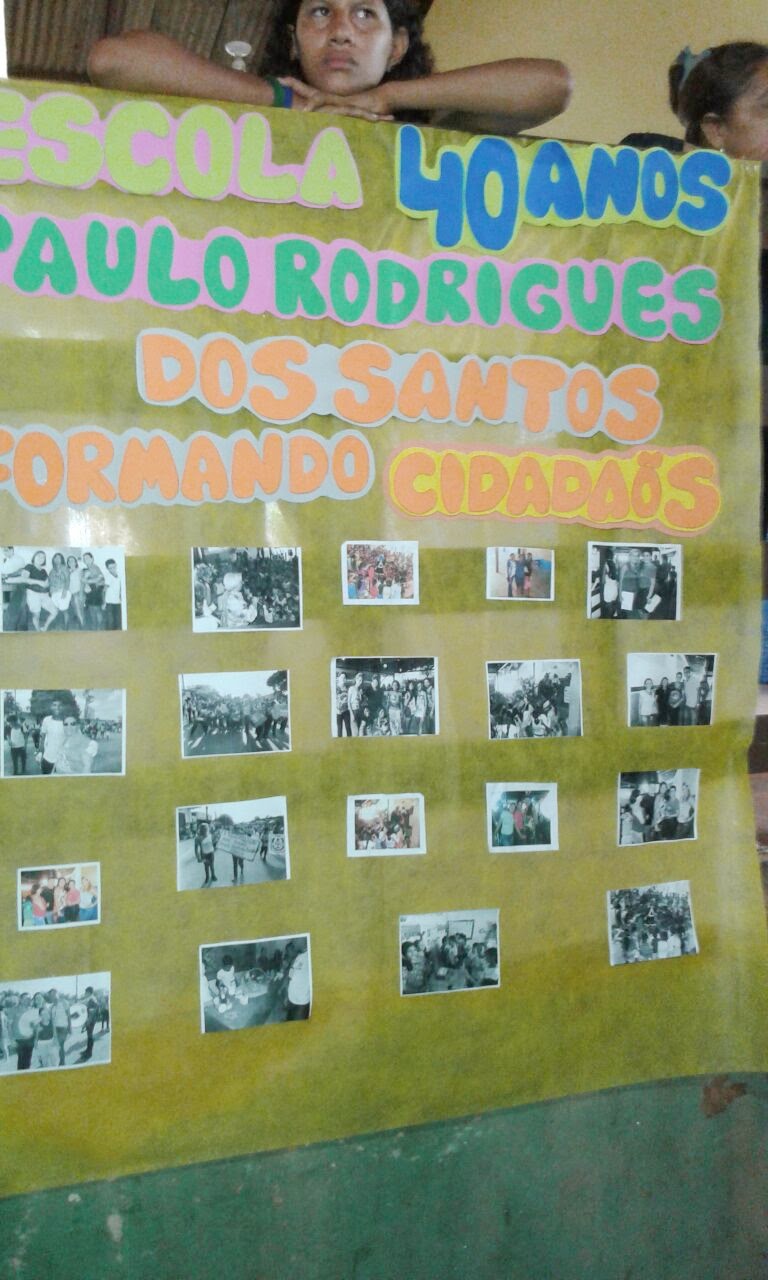 ESCOLA 40 ANOS
PAULO RODRIGUES
DOS SANTOS
FORMANDO CIDADAÕS